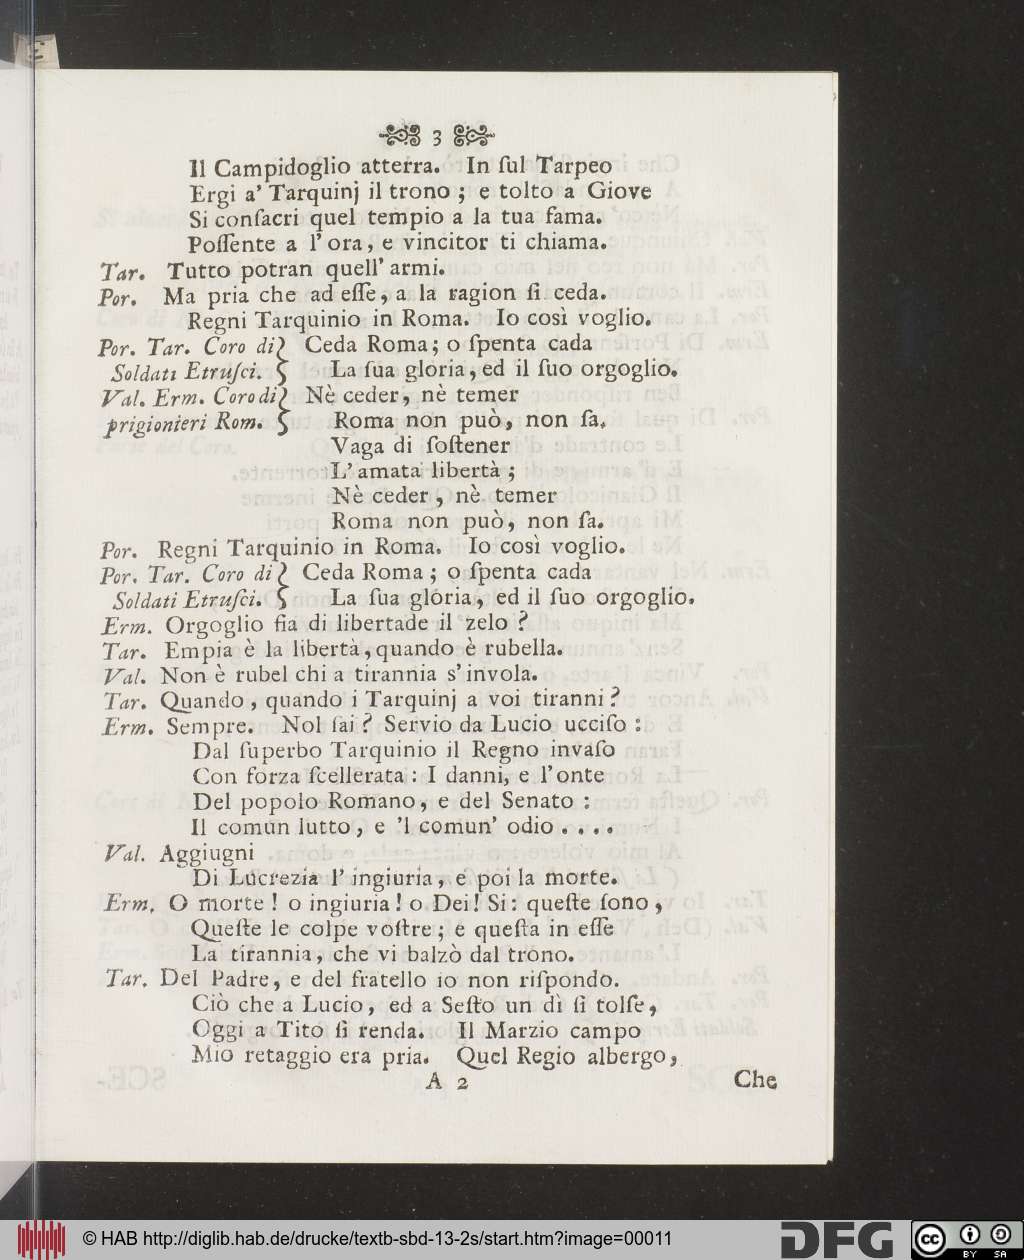 3
Il Campidoglio atterra. In ſul Tarpeo
Ergi a' Tarquinj il trono ; e tolto a Giove
Si conſacri quel tempio a la tua fama.
Poſſente a l' ora, e vincitor ti chiama.
Tar. Tutto potran quell' armi.
Por. Ma pria che ad eſſe, a la ragion ſi ceda.
Regni Tarquinio in Roma. Io così voglio.
Por. Tar. Coro di Ceda Roma; o ſpenta cada
Soldati Etruſci. La ſua gloria, ed il ſuo orgoglio.
Val. Erm. Coro di Nè ceder, nè temer
prigionieri Rom. Roma non può, non ſa.
Vaga di ſoſtener
L' amata libertà ;
Nè ceder , nè temer
Roma non può, non ſa.
Por. Regni Tarquinio in Roma. Io così voglio.
Por. Tar. Coro di Ceda Roma ; o ſpenta cada
Soldati Etruſci. La ſua gloria, ed il ſuo orgoglio.
Erm. Orgoglio fia di libertade il zelo ?
Tar. Empia è la libertà, quando è rubella.
Val. Non è rubel chi a tirannia s' invola.
Tar. Quando , quando i Tarquinj a voi tiranni ?
Erm. Sempre. Nol ſai ? Servio da Lucio ucciſo :
Dal ſuperbo Tarquinio il Regno invaſo
Con forza ſcellerata : I danni, e l' onte
Del popolo Romano, e del Senato :
Il comun lutto, e 'l comun' odio . . . .
Val. Aggiugni
Di Lucrezia l' ingiuria, e poi la morte.
Erm. O morte ! o ingiuria ! o Dei! Si: queſte ſono ,
Queſte le colpe voſtre ; e queſta in eſſe
La tirannia, che vi balzò dal trono.
Tar. Del Padre, e del fratello io non riſpondo.
Ciò che a Lucio, ed a Seſto un dì ſi tolſe,
Oggi a Tito ſi renda. Il Marzio campo
Mio retaggio era pria. Quel Regio albergo,
A 2 Che
© HAB http://diglib.hab.de/drucke/textb-sbd-13-2s/start.htm?image=00011
DFG
cc BY SA